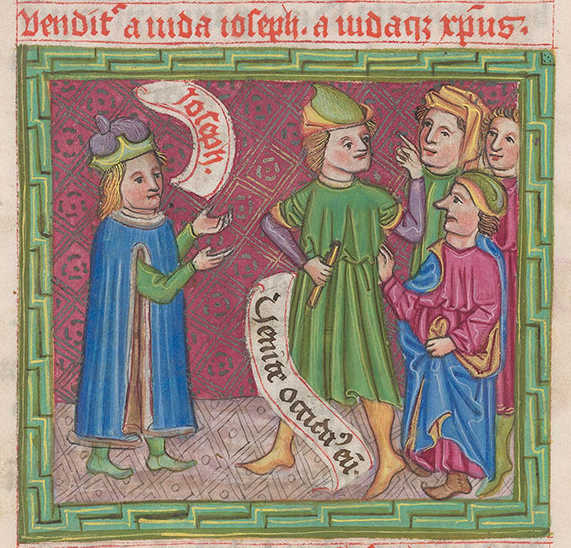 Vendit᷒ a iuda ioseph. a iudaqꝫ xp̄us.
Ioseph.
Venite occidam᷒ eū.